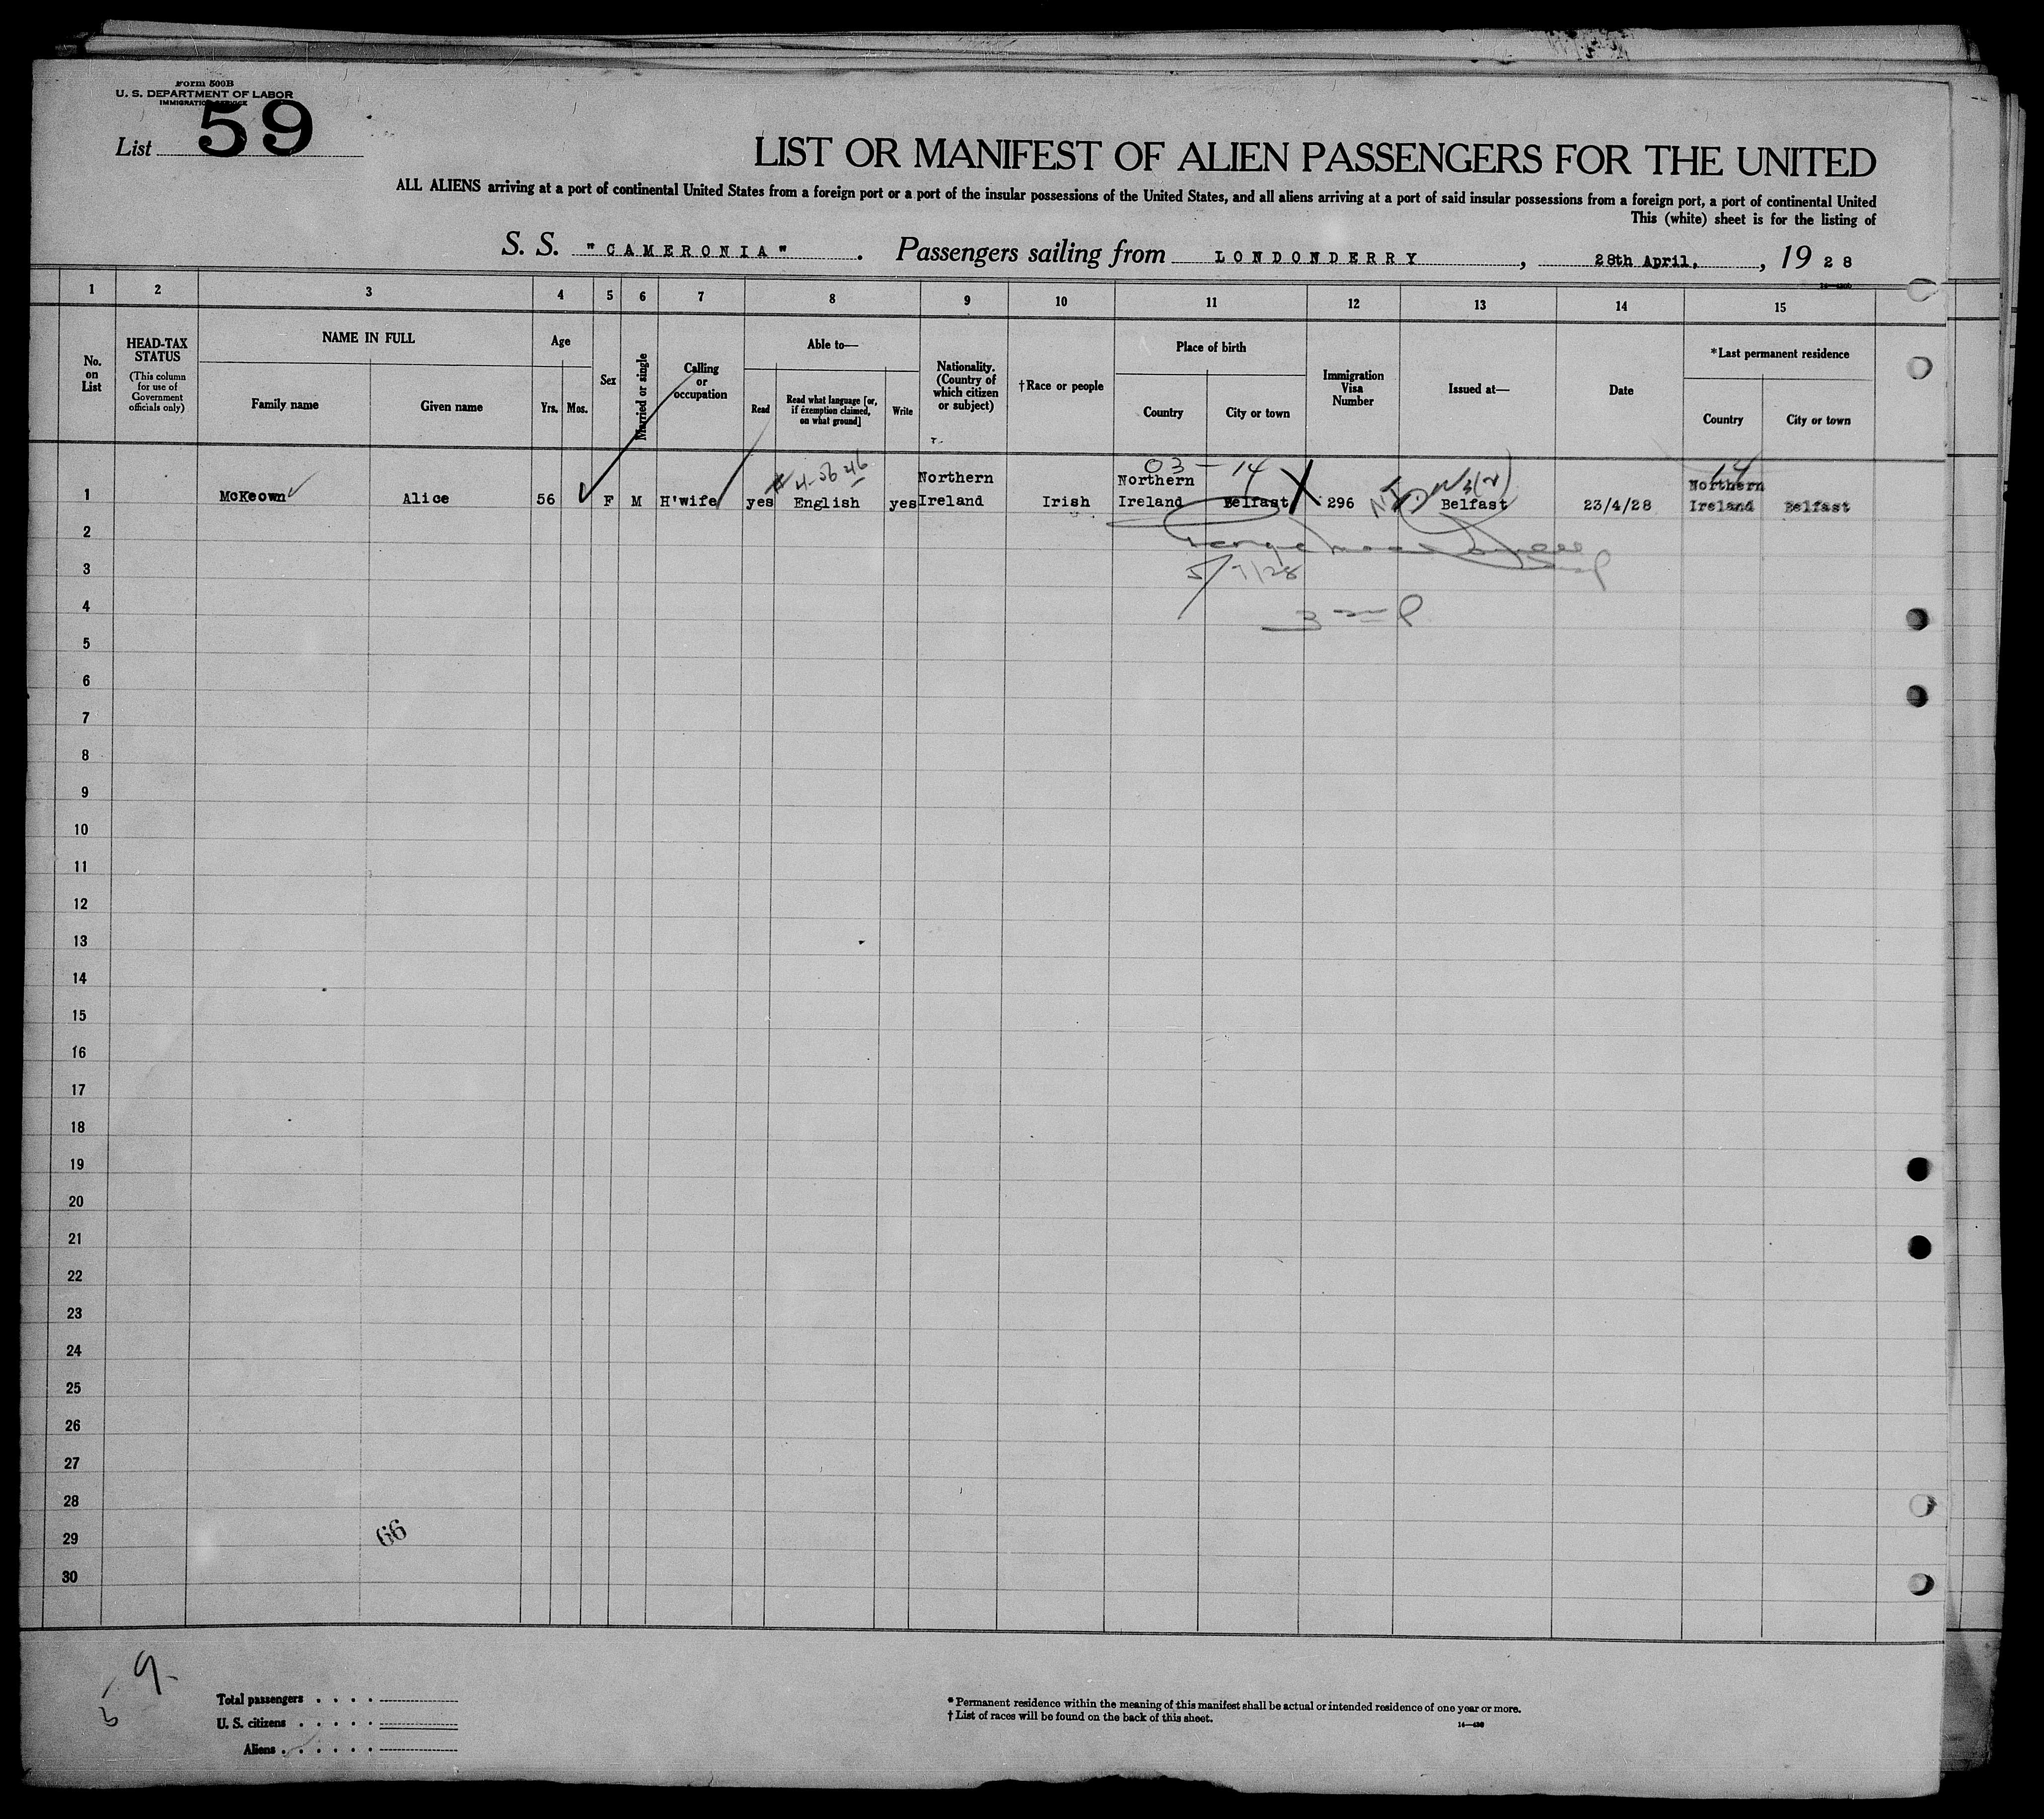 Form 500B
U. S. DEPARTMENT OF LABOR
IMMIGRATION SERVICE
List 59
LIST OR MANIFEST OF ALIEN PASSENGERS FOR THE UNITED
ALL ALIENS arriving at a port of continental United States from a foreign port or a port of the insular possessions of the United States, and all aliens arriving at a port of said insular possessions from a foreign port, a port of continental United
This (white) sheet is for the listing of
S. S. "CAMERONIA". Passengers sailing from LONDONDERRY, 28th April, 1928
1 2 3 4 5 6 7 8 9 10 11 12 13 14 15
No. on List
HEAD-TAX STATUS
(This column for use of Government officials only)
NAME IN FULL
Family name
Given name
Age
Yrs. Mos.
Sex
Married or single
Calling or occupation
Able to—
Read
Read what language [or, if exemption claimed, on what ground]
Write
Nationality. (Country of which citizen or subject)
†Race or people
Place of birth
Country
City or town
Immigration Visa Number
Issued at—
Date
*Last permanent residence
Country
City or town
03-14
14
1 McKeown Alice 56 F M H'wife yes English yes Northern Ireland Irish Northern Ireland Belfast 296 Belfast 23/4/28 Northern Ireland Belfast
2
3
4
5
6
7
8
9
10
11
12
13
14
15
16
17
18
19
20
21
22
23
24
25
26
27
28
29
30
66
9
Total passengers . . . .
U. S. citizens . . . . .
Aliens . . . . . .
* Permanent residence within the meaning of this manifest shall be actual or intended residence of one year or more.
† List of races will be found on the back of this sheet.